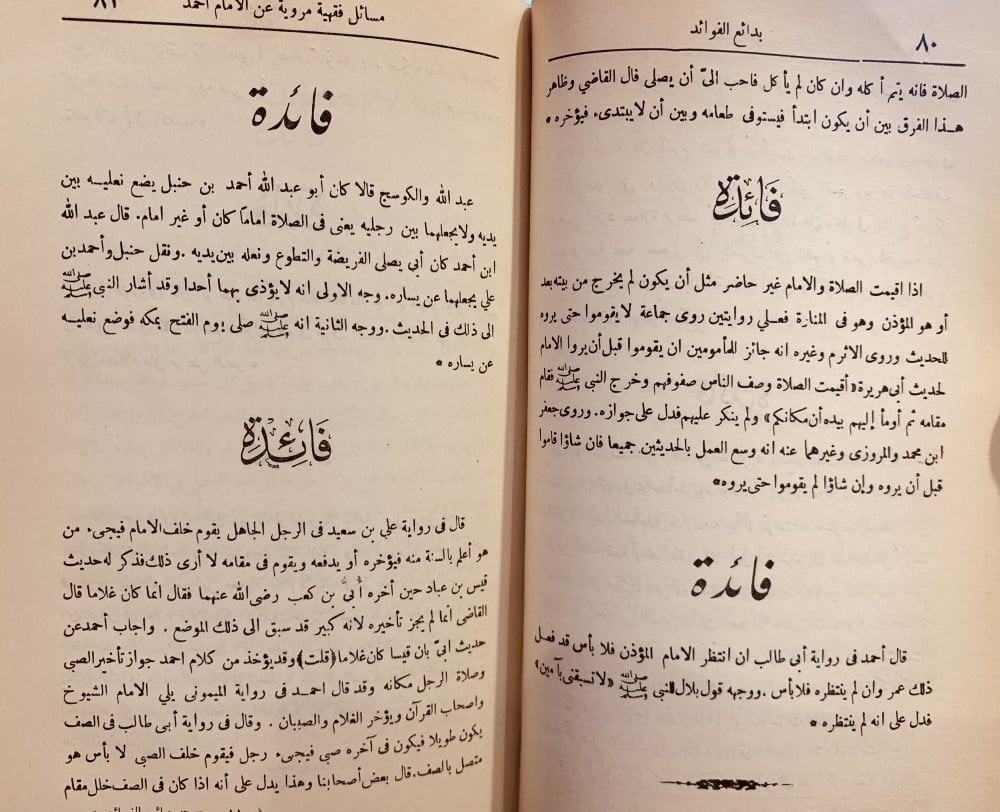 ٨٠
بدائع الفوائد
الصلاة فانه يتم أكله وان كان لم يأكل فاحب الىّ أن يصلى قال القاضي وظاهر
هذا الفرق بين أن يكون ابتدأ فيستوفى طعامه وبين أن لا يبتدىء فيؤخره *
فَائِدَة
اذا اقيمت الصلاة والامام غير حاضر مثل أن يكون لم يخرج من بيته بعد
أو هو المؤذن وهو فى المنارة فعلي روايتين روى جماعة لا يقوموا حتى يروه
للحديث وروى الاثرم وغيره انه جائز للمأمومين ان يقوموا قبل أن يروا الامام
لحديث أبى هريرة «أقيمت الصلاة وصف الناس صفوفهم وخرج النبى ﷺ فقام
مقامه ثم أومأ إليهم بيده أن مكانكم» ولم ينكر عليهم فدل على جوازه. وروى جعفر
ابن محمد والمروزى وغيرهما عنه انه وسع العمل بالحديثين جميعا فان شاؤا قاموا
قبل أن يروه وإن شاؤا لم يقوموا حتى يروه *
فائدة
قال أحمد فى رواية أبى طالب ان انتظر الامام المؤذن فلا بأس قد فعل
ذلك عمر وان لم ينتظره فلا بأس. ووجهه قول بلال للنبى ﷺ «لا تسبقنى بآمين»
فدل على انه لم ينتظره *
مسائل فقهية مروية عن الامام احمد
٨١
فائدة
عبد الله والكوسج قالا كان أبو عبد الله أحمد بن حنبل يضع نعليه بين
يديه ولا يجعلهما بين رجليه يعنى فى الصلاة اماما كان أو غير امام. قال عبد الله
ابن أحمد كان أبي يصلى الفريضة والتطوع ونعله بين يديه. ونقل حنبل وأحمد بن
علي يجعلهما عن يساره. وجه الاولى انه لا يؤذى بهما أحدا وقد أشار النبى ﷺ
الى ذلك فى الحديث. ووجه الثانية انه ﷺ صلى يوم الفتح بمكه فوضع نعليه
عن يساره *
فَائِدَة
قال فى رواية علي بن سعيد فى الرجل الجاهل يقوم خلف الامام فيجىء من
هو أعلم بالسنة منه فيؤخره أو يدفعه ويقوم فى مقامه لا أرى ذلك فذكر له حديث
قيس بن عباد حين أخره أُبىُّ بن كعب رضى الله عنهما فقال انما كان غلاما قال
القاضى انما لم يجز تأخيره لانه كبير قد سبق الى ذلك الموضع. واجاب أحمد عن
حديث ابىّ بان قيسا كان غلاما (قلت) وقد يؤخذ من كلام احمد جواز تأخير الصبى
وصلاة الرجل مكانه وقد قال احمد فى رواية الميمونى يلي الامام الشيوخ
واصحاب القرآن ويؤخر الغلام والصبيان. وقال فى رواية أبى طالب فى الصف
يكون طويلا فيكون فى آخره صبى فيجىء رجل فيقوم خلف الصبى لا بأس هو
متصل بالصف. قال بعض أصحابنا وهذا يدل على أنه اذا كان فى الصف خلل مقام